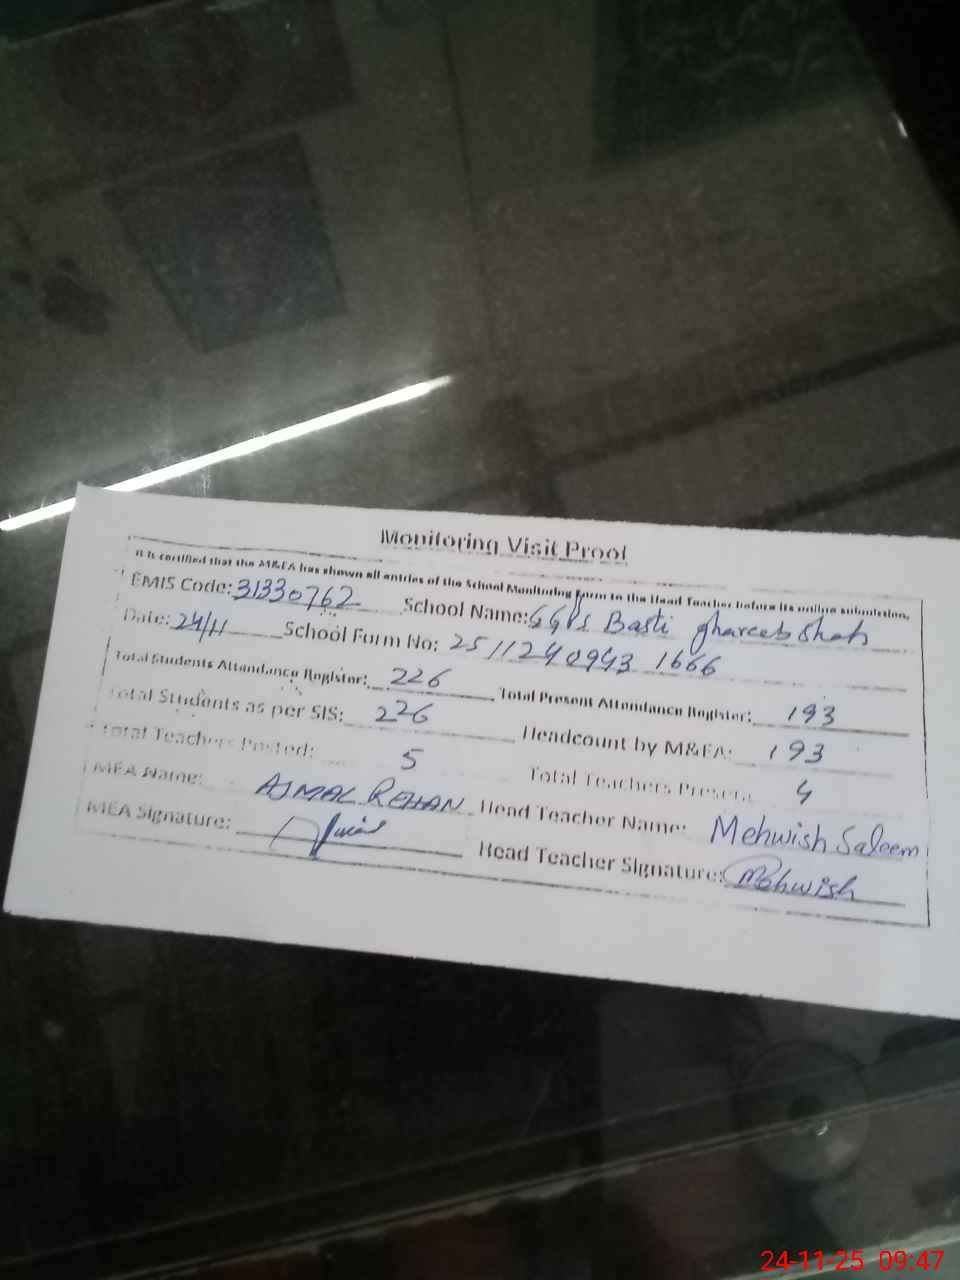 Monitoring Visit Proof
It is certified that the M&EA has shown all entries of the School Monitoring Form to the Head Teacher before its online submission.
EMIS Code: 31330762 School Name: GGPS Basti ghareeb Shah
Date: 24/11 School Form No: 25112409431666
Total Students Attendance Register: 226 Total Present Attendance Register: 193
Total Students as per SIS: 226 Headcount by M&EA: 193
Total Teachers Posted: 5 Total Teachers Present: 4
MEA Name: AJMAL REHAN Head Teacher Name: Mehwish Saleem
MEA Signature: Head Teacher Signature: Mehwish
24-11-25 09:47